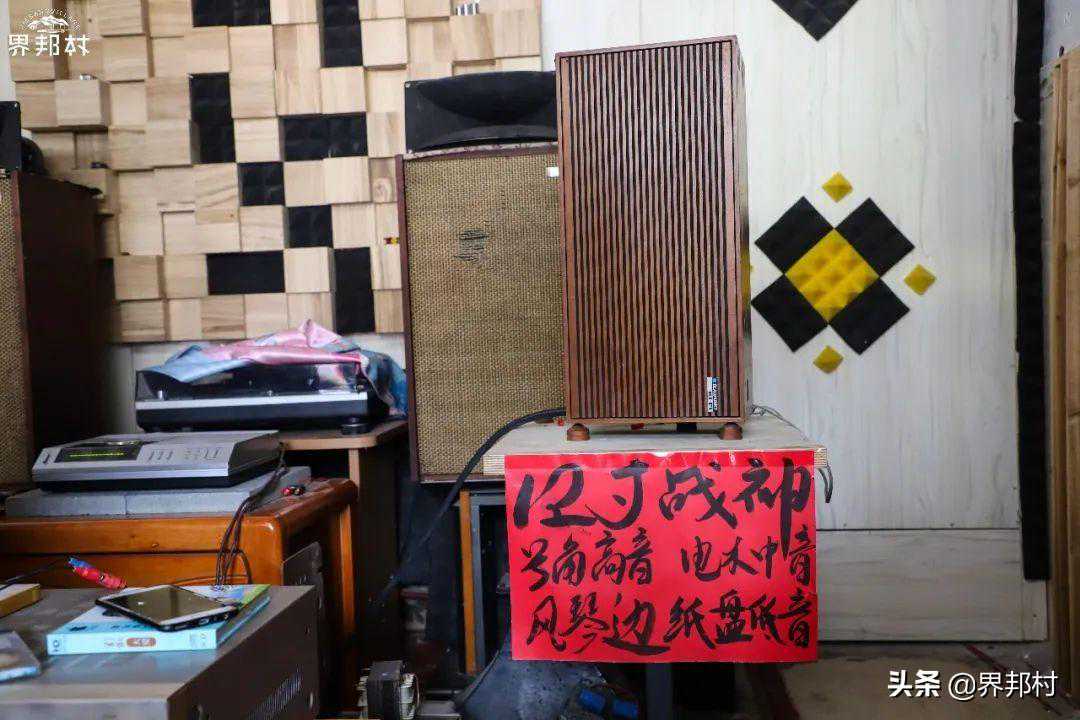 界邦村
12寸战神
号角高音 电木中音
风琴边纸盘低音
头条 @界邦村